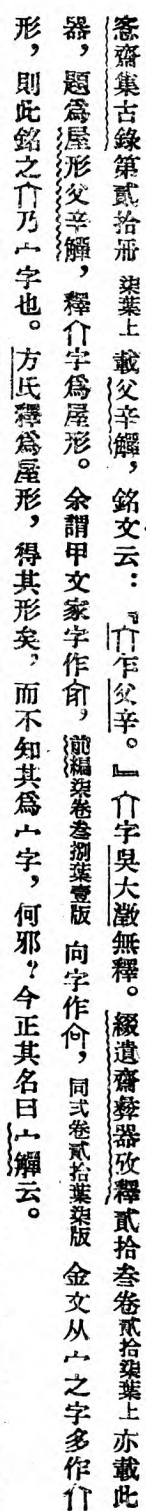 愙齋集古錄第貳拾册柒葉上載父辛觶，銘文云：『宀乍父辛。』宀字吳大澂無釋。綴遺齋彝器攷釋貳拾叁卷貳拾柒葉上亦載此
器，題爲屋形父辛觶，釋宀字爲屋形。余謂甲文家字作，前編柒卷叁捌葉壹版向字作，同弍卷貳拾葉柒版金文从宀之字多作宀
形，則此銘之宀乃宀字也。方氏釋爲屋形，得其形矣，而不知其爲宀字，何邪？今正其名曰宀觶云。